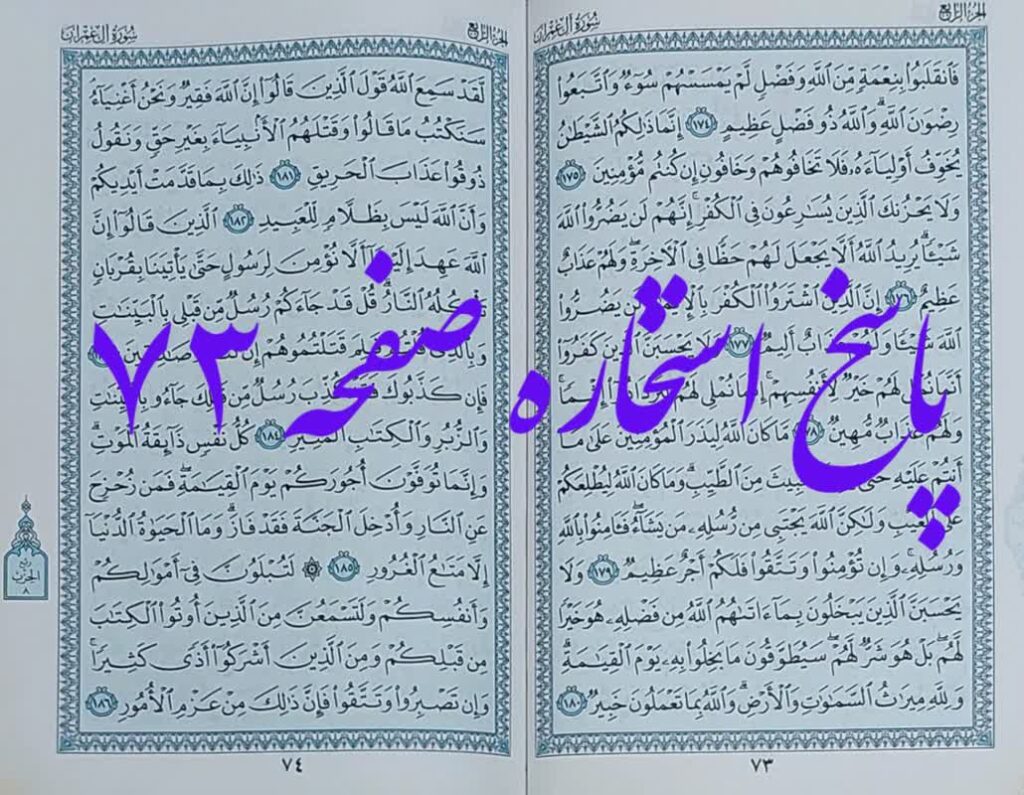 الجزء الرابع سورة آل عمران
فَٱنقَلَبُوا۟ بِنِعْمَةٍ مِّنَ ٱللَّهِ وَفَضْلٍ لَّمْ يَمْسَسْهُمْ سُوٓءٌ وَٱتَّبَعُوا۟
رِضْوَٰنَ ٱللَّهِ ۗ وَٱللَّهُ ذُو فَضْلٍ عَظِيمٍ ١٧٤ إِنَّمَا ذَٰلِكُمُ ٱلشَّيْطَٰنُ
يُخَوِّفُ أَوْلِيَآءَهُۥ فَلَا تَخَافُوهُمْ وَخَافُونِ إِن كُنتُم مُّؤْمِنِينَ ١٧٥
وَلَا يَحْزُنكَ ٱلَّذِينَ يُسَٰرِعُونَ فِى ٱلْكُفْرِ ۚ إِنَّهُمْ لَن يَضُرُّوا۟ ٱللَّهَ
شَيْـًٔا ۗ يُرِيدُ ٱللَّهُ أَلَّا يَجْعَلَ لَهُمْ حَظًّا فِى ٱلْـَٔاخِرَةِ ۖ وَلَهُمْ عَذَابٌ
عَظِيمٌ إِنَّ ٱلَّذِينَ ٱشْتَرَوُا۟ ٱلْكُفْرَ لَن يَضُرُّوا۟
ٱللَّهَ شَيْـًٔا وَلَهُمْ عَذَابٌ أَلِيمٌ ١٧٧ وَلَا يَحْسَبَنَّ ٱلَّذِينَ كَفَرُوا۟
أَنَّمَا نُمْلِى لَهُمْ خَيْرٌ لِّأَنفُسِهِمْ ۚ إِنَّمَا نُمْلِى لَهُمْ إِثْمًا ۚ
وَلَهُمْ عَذَابٌ مُّهِينٌ مَّا كَانَ ٱللَّهُ لِيَذَرَ ٱلْمُؤْمِنِينَ عَلَىٰ مَآ
أَنتُمْ عَلَيْهِ حَتَّىٰ مِنَ ٱلطَّيِّبِ ۗ وَمَا كَانَ ٱللَّهُ لِيُطْلِعَكُمْ
عَلَى ٱلْغَيْبِ وَلَٰكِنَّ ٱللَّهَ يَجْتَبِى مِن رُّسُلِهِۦ مَن يَشَآءُ ۖ فَـَٔامِنُوا۟ بِٱللَّهِ
وَرُسُلِهِۦ ۚ وَإِن تُؤْمِنُوا۟ وَتَتَّقُوا۟ فَلَكُمْ أَجْرٌ عَظِيمٌ ١٧٩ وَلَا
يَحْسَبَنَّ ٱلَّذِينَ يَبْخَلُونَ بِمَآ ءَاتَىٰهُمُ ٱللَّهُ مِن فَضْلِهِۦ هُوَ خَيْرًا
لَّهُم ۖ بَلْ هُوَ شَرٌّ لَّهُمْ ۖ سَيُطَوَّقُونَ مَا بَخِلُوا۟ بِهِۦ يَوْمَ ٱلْقِيَٰمَةِ ۗ
وَلِلَّهِ مِيرَٰثُ ٱلسَّمَٰوَٰتِ وَٱلْأَرْضِ ۗ وَٱللَّهُ بِمَا تَعْمَلُونَ خَبِيرٌ ١٨٠
٧٣
الجزء الرابع سورة آل عمران
لَّقَدْ سَمِعَ ٱللَّهُ قَوْلَ ٱلَّذِينَ قَالُوٓا۟ إِنَّ ٱللَّهَ فَقِيرٌ وَنَحْنُ أَغْنِيَآءُ ۘ
سَنَكْتُبُ مَا قَالُوا۟ وَقَتْلَهُمُ ٱلْأَنۢبِيَآءَ بِغَيْرِ حَقٍّ وَنَقُولُ
ذُوقُوا۟ عَذَابَ ٱلْحَرِيقِ ١٨١ ذَٰلِكَ بِمَا قَدَّمَتْ أَيْدِيكُمْ
وَأَنَّ ٱللَّهَ لَيْسَ بِظَلَّامٍ لِّلْعَبِيدِ ١٨٢ ٱلَّذِينَ قَالُوٓا۟ إِنَّ
ٱللَّهَ عَهِدَ إِلَيْنَآ أَلَّا نُؤْمِنَ لِرَسُولٍ حَتَّىٰ يَأْتِيَنَا بِقُرْبَانٍ
تَأْكُلُهُ ٱلنَّارُ ۗ قُلْ قَدْ جَآءَكُمْ رُسُلٌ مِّن قَبْلِى بِٱلْبَيِّنَٰتِ
وَبِٱلَّذِى قُلْتُمْ فَلِمَ قَتَلْتُمُوهُمْ إِن
فَإِن كَذَّبُوكَ فَقَدْ كُذِّبَ رُسُلٌ مِّن قَبْلِكَ جَآءُو
وَٱلزُّبُرِ وَٱلْكِتَٰبِ ٱلْمُنِيرِ ١٨٤ كُلُّ نَفْسٍ ذَآئِقَةُ ٱلْمَوْتِ ۗ
وَإِنَّمَا تُوَفَّوْنَ أُجُورَكُمْ يَوْمَ ٱلْقِيَٰمَةِ ۖ فَمَن زُحْزِحَ
عَنِ ٱلنَّارِ وَأُدْخِلَ ٱلْجَنَّةَ فَقَدْ فَازَ ۗ وَمَا ٱلْحَيَوٰةُ ٱلدُّنْيَآ
إِلَّا مَتَٰعُ ٱلْغُرُورِ ١٨٥ ۞ لَتُبْلَوُنَّ فِىٓ أَمْوَٰلِكُمْ
وَأَنفُسِكُمْ وَلَتَسْمَعُنَّ مِنَ ٱلَّذِينَ أُوتُوا۟ ٱلْكِتَٰبَ
مِن قَبْلِكُمْ وَمِنَ ٱلَّذِينَ أَشْرَكُوٓا۟ أَذًى كَثِيرًا ۚ
وَإِن تَصْبِرُوا۟ وَتَتَّقُوا۟ فَإِنَّ ذَٰلِكَ مِنْ عَزْمِ ٱلْأُمُورِ ١٨٦
٧٤
ربع
الحزب
٨
پاسخ استخاره صفحه ۷۳